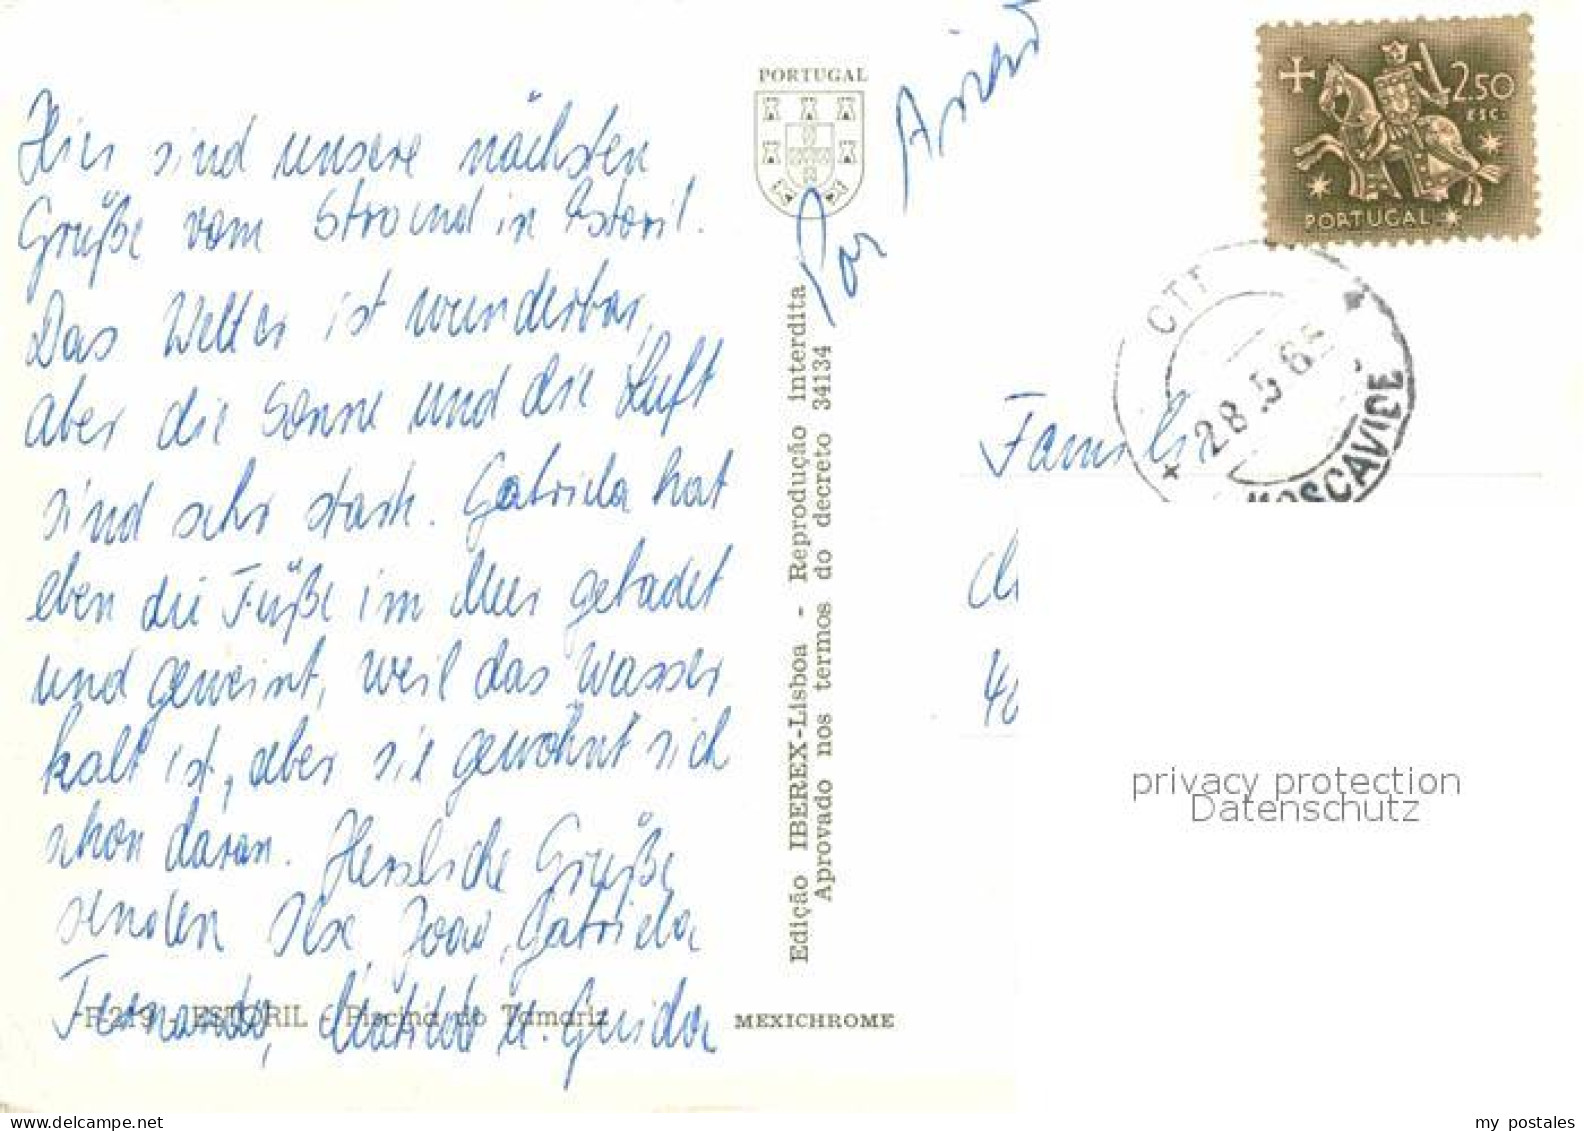 Hier sind unsere nächsten
Grüße vom Strand in Estoril.
Das Wetter ist wunderbar,
aber die Sonne und die Luft
sind sehr stark. Gabriela hat
eben die Füße im Meer gebadet
und geweint, weil das Wasser
kalt ist, aber sie gewöhnt sich
schon daran. Herzliche Grüße
senden Ilse, Joao, Gabriela
Fernando, Matilde u. Guida
F-219 - ESTORIL - Piscina do Tamariz
MEXICHROME
PORTUGAL
Edição IBEREX-Lisboa - Reprodução interdita
Aprovado nos termos do decreto 34134
Por
2.50
ESC.
PORTUGAL
CTT
28.5.65
MOSCAVIDE
Familie
privacy protection
Datenschutz
my postales